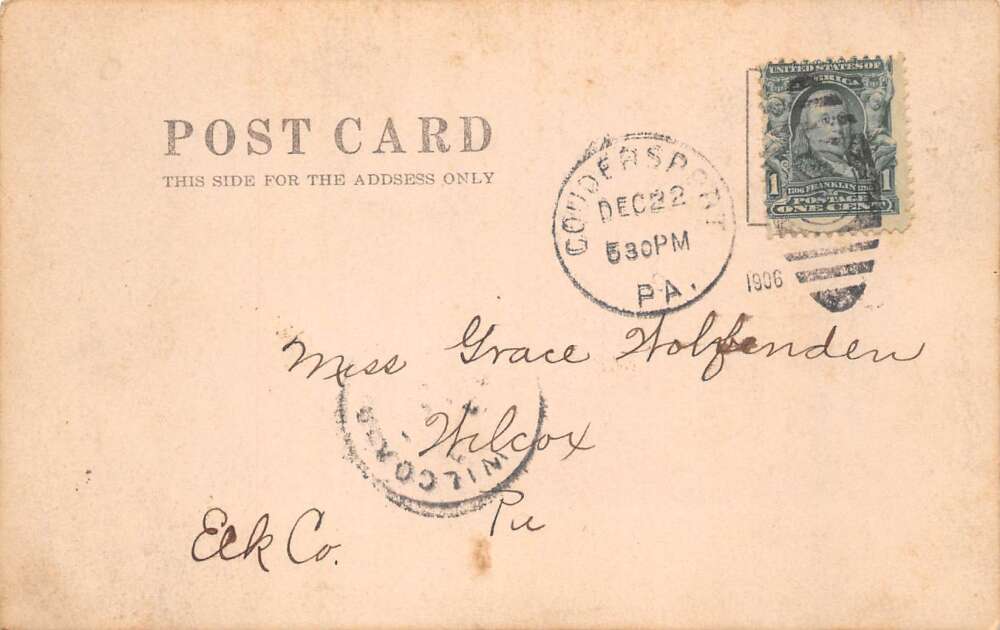 POST CARD
THIS SIDE FOR THE ADDSESS ONLY
UNITED STATES OF
AMERICA
1
1706 FRANKLIN 1790
POSTAGE
ONE CENT
COUDERSPORT
DEC 22
530PM
PA.
1906
Miss Grace Wolfenden
Wilcox
WILCOX
Pa
Elk Co.